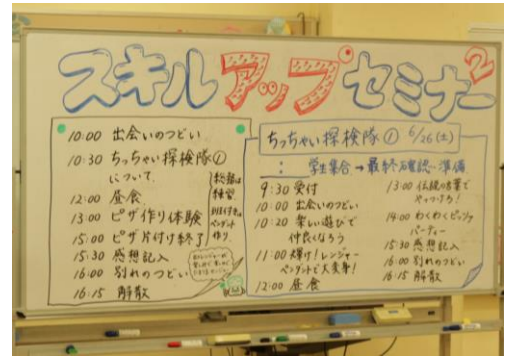 スキルアップセミナー2
10:00 出会いのつどい
10:30 ちっちゃい探検隊①
について
12:00 昼食
13:00 ピザ作り体験
15:00 ピザ片付け終了
15:30 感想記入
16:00 別れのつどい
16:15 解散
練習
ペンダント
作り
ちっちゃい探検隊① 6/26(土)
: 学生集合→最終確認・準備
9:30 受付
10:00 出会いのつどい
10:20 楽しい遊びで
仲良くなろう
11:00 輝け!レンジャー
ペンダントで大変身!
12:00 昼食
13:00 伝説の言葉で
やっつけろ!
14:00 わくわくピッツァ
パーティー
15:30 感想記入
16:00 別れのつどい
16:15 解散